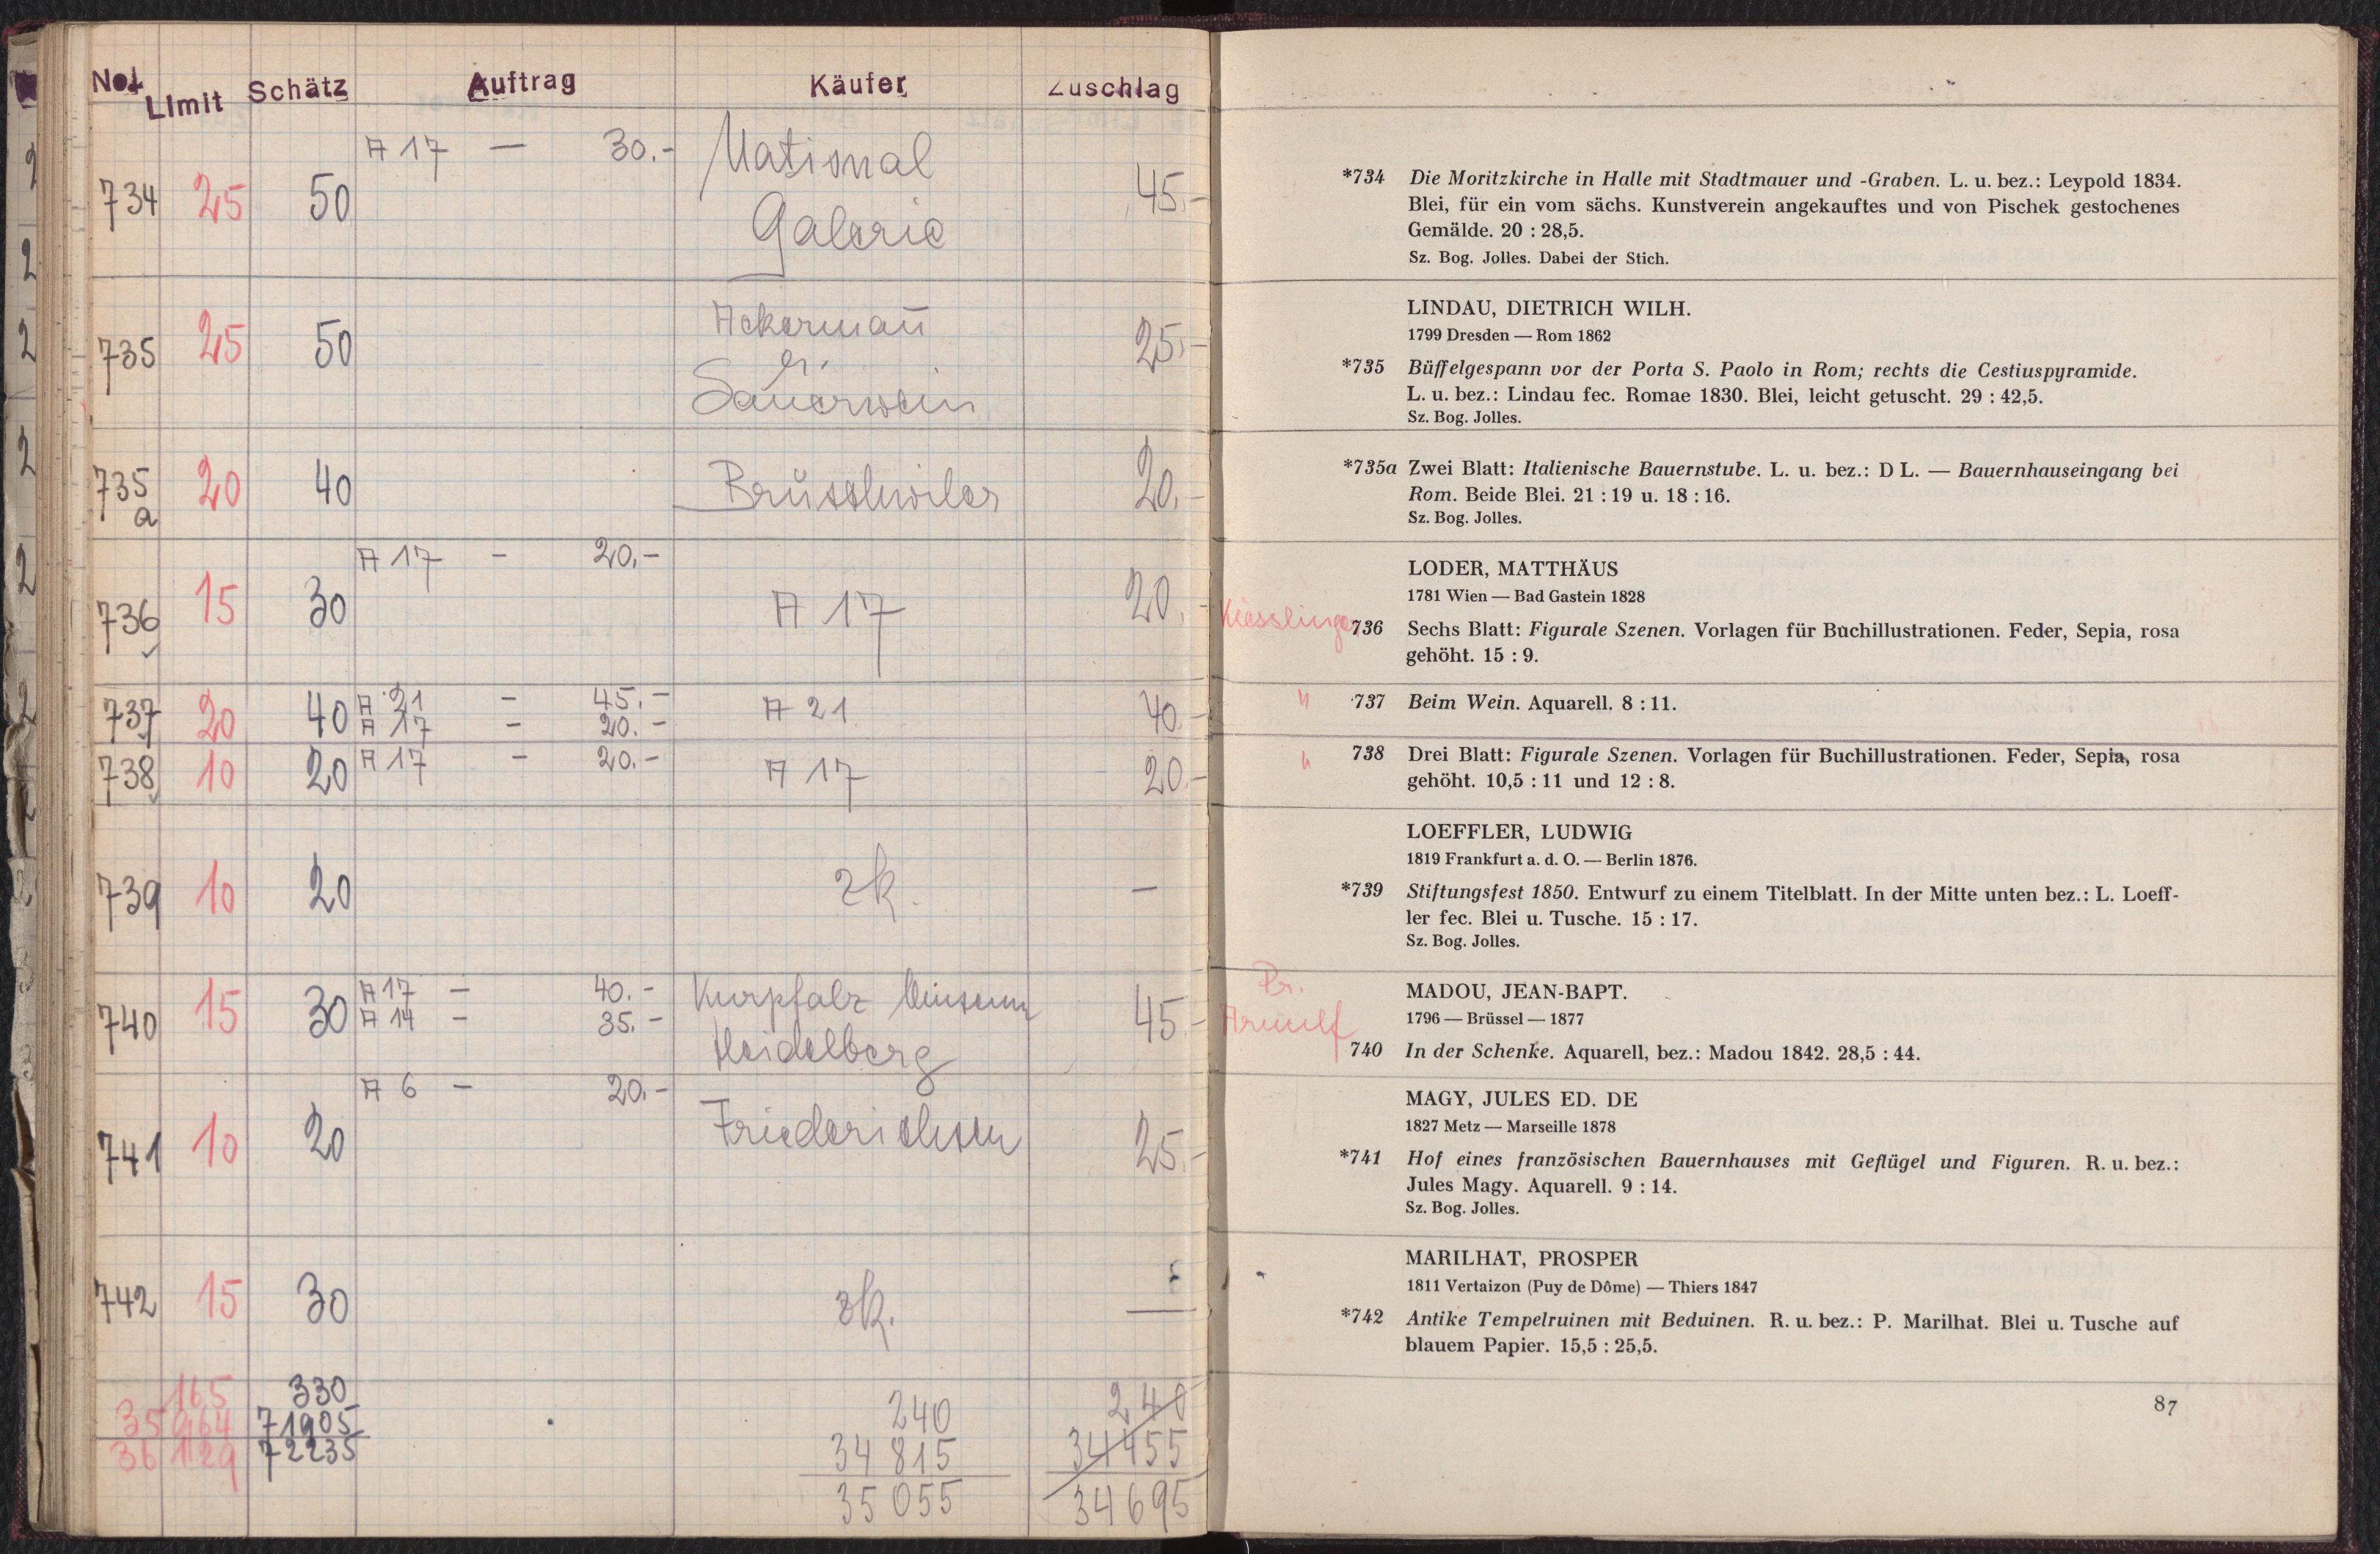 No. Limit Schätz Auftrag Käufer Zuschlag
A 17 — 30.-
734 25 50 National Galerie 45.-
735 25 50 Ackermañ & Sauerwein 25.-
735a 20 40 Brüschwiler 20.-
A 17 - 20.-
736 15 30 A 17 20.-
737 20 40 A 21 - 45.- A 21 40.-
A 17 - 20.-
738 10 20 A 17 - 20.- A 17 20.-
739 10 20 zk. —
740 15 30 A 17 - 40.- Kurpfalz Museum 45.-
A 14 - 35.- Heidelberg
A 6 - 20.-
741 10 20 Friederichsen 25.-
742 15 30 zk. —
165 330 240 240
35964 71905 34815 34455
36129 72235 35055 34695
*734 Die Moritzkirche in Halle mit Stadtmauer und -Graben. L. u. bez.: Leypold 1834.
Blei, für ein vom sächs. Kunstverein angekauftes und von Pischek gestochenes
Gemälde. 20 : 28,5.
Sz. Bog. Jolles. Dabei der Stich.
LINDAU, DIETRICH WILH.
1799 Dresden — Rom 1862
*735 Büffelgespann vor der Porta S. Paolo in Rom; rechts die Cestiuspyramide.
L. u. bez.: Lindau fec. Romae 1830. Blei, leicht getuscht. 29 : 42,5.
Sz. Bog. Jolles.
*735a Zwei Blatt: Italienische Bauernstube. L. u. bez.: D L. — Bauernhauseingang bei
Rom. Beide Blei. 21 : 19 u. 18 : 16.
Sz. Bog. Jolles.
LODER, MATTHÄUS
1781 Wien — Bad Gastein 1828
Kiesslinger 736 Sechs Blatt: Figurale Szenen. Vorlagen für Buchillustrationen. Feder, Sepia, rosa
gehöht. 15 : 9.
" 737 Beim Wein. Aquarell. 8 : 11.
" 738 Drei Blatt: Figurale Szenen. Vorlagen für Buchillustrationen. Feder, Sepia, rosa
gehöht. 10,5 : 11 und 12 : 8.
LOEFFLER, LUDWIG
1819 Frankfurt a. d. O. — Berlin 1876.
*739 Stiftungsfest 1850. Entwurf zu einem Titelblatt. In der Mitte unten bez.: L. Loeff-
ler fec. Blei u. Tusche. 15 : 17.
Sz. Bog. Jolles.
Pr.
Arnulf
MADOU, JEAN-BAPT.
1796 — Brüssel — 1877
740 In der Schenke. Aquarell, bez.: Madou 1842. 28,5 : 44.
MAGY, JULES ED. DE
1827 Metz — Marseille 1878
*741 Hof eines französischen Bauernhauses mit Geflügel und Figuren. R. u. bez.:
Jules Magy. Aquarell. 9 : 14.
Sz. Bog. Jolles.
MARILHAT, PROSPER
1811 Vertaizon (Puy de Dôme) — Thiers 1847
*742 Antike Tempelruinen mit Beduinen. R. u. bez.: P. Marilhat. Blei u. Tusche auf
blauem Papier. 15,5 : 25,5.
87